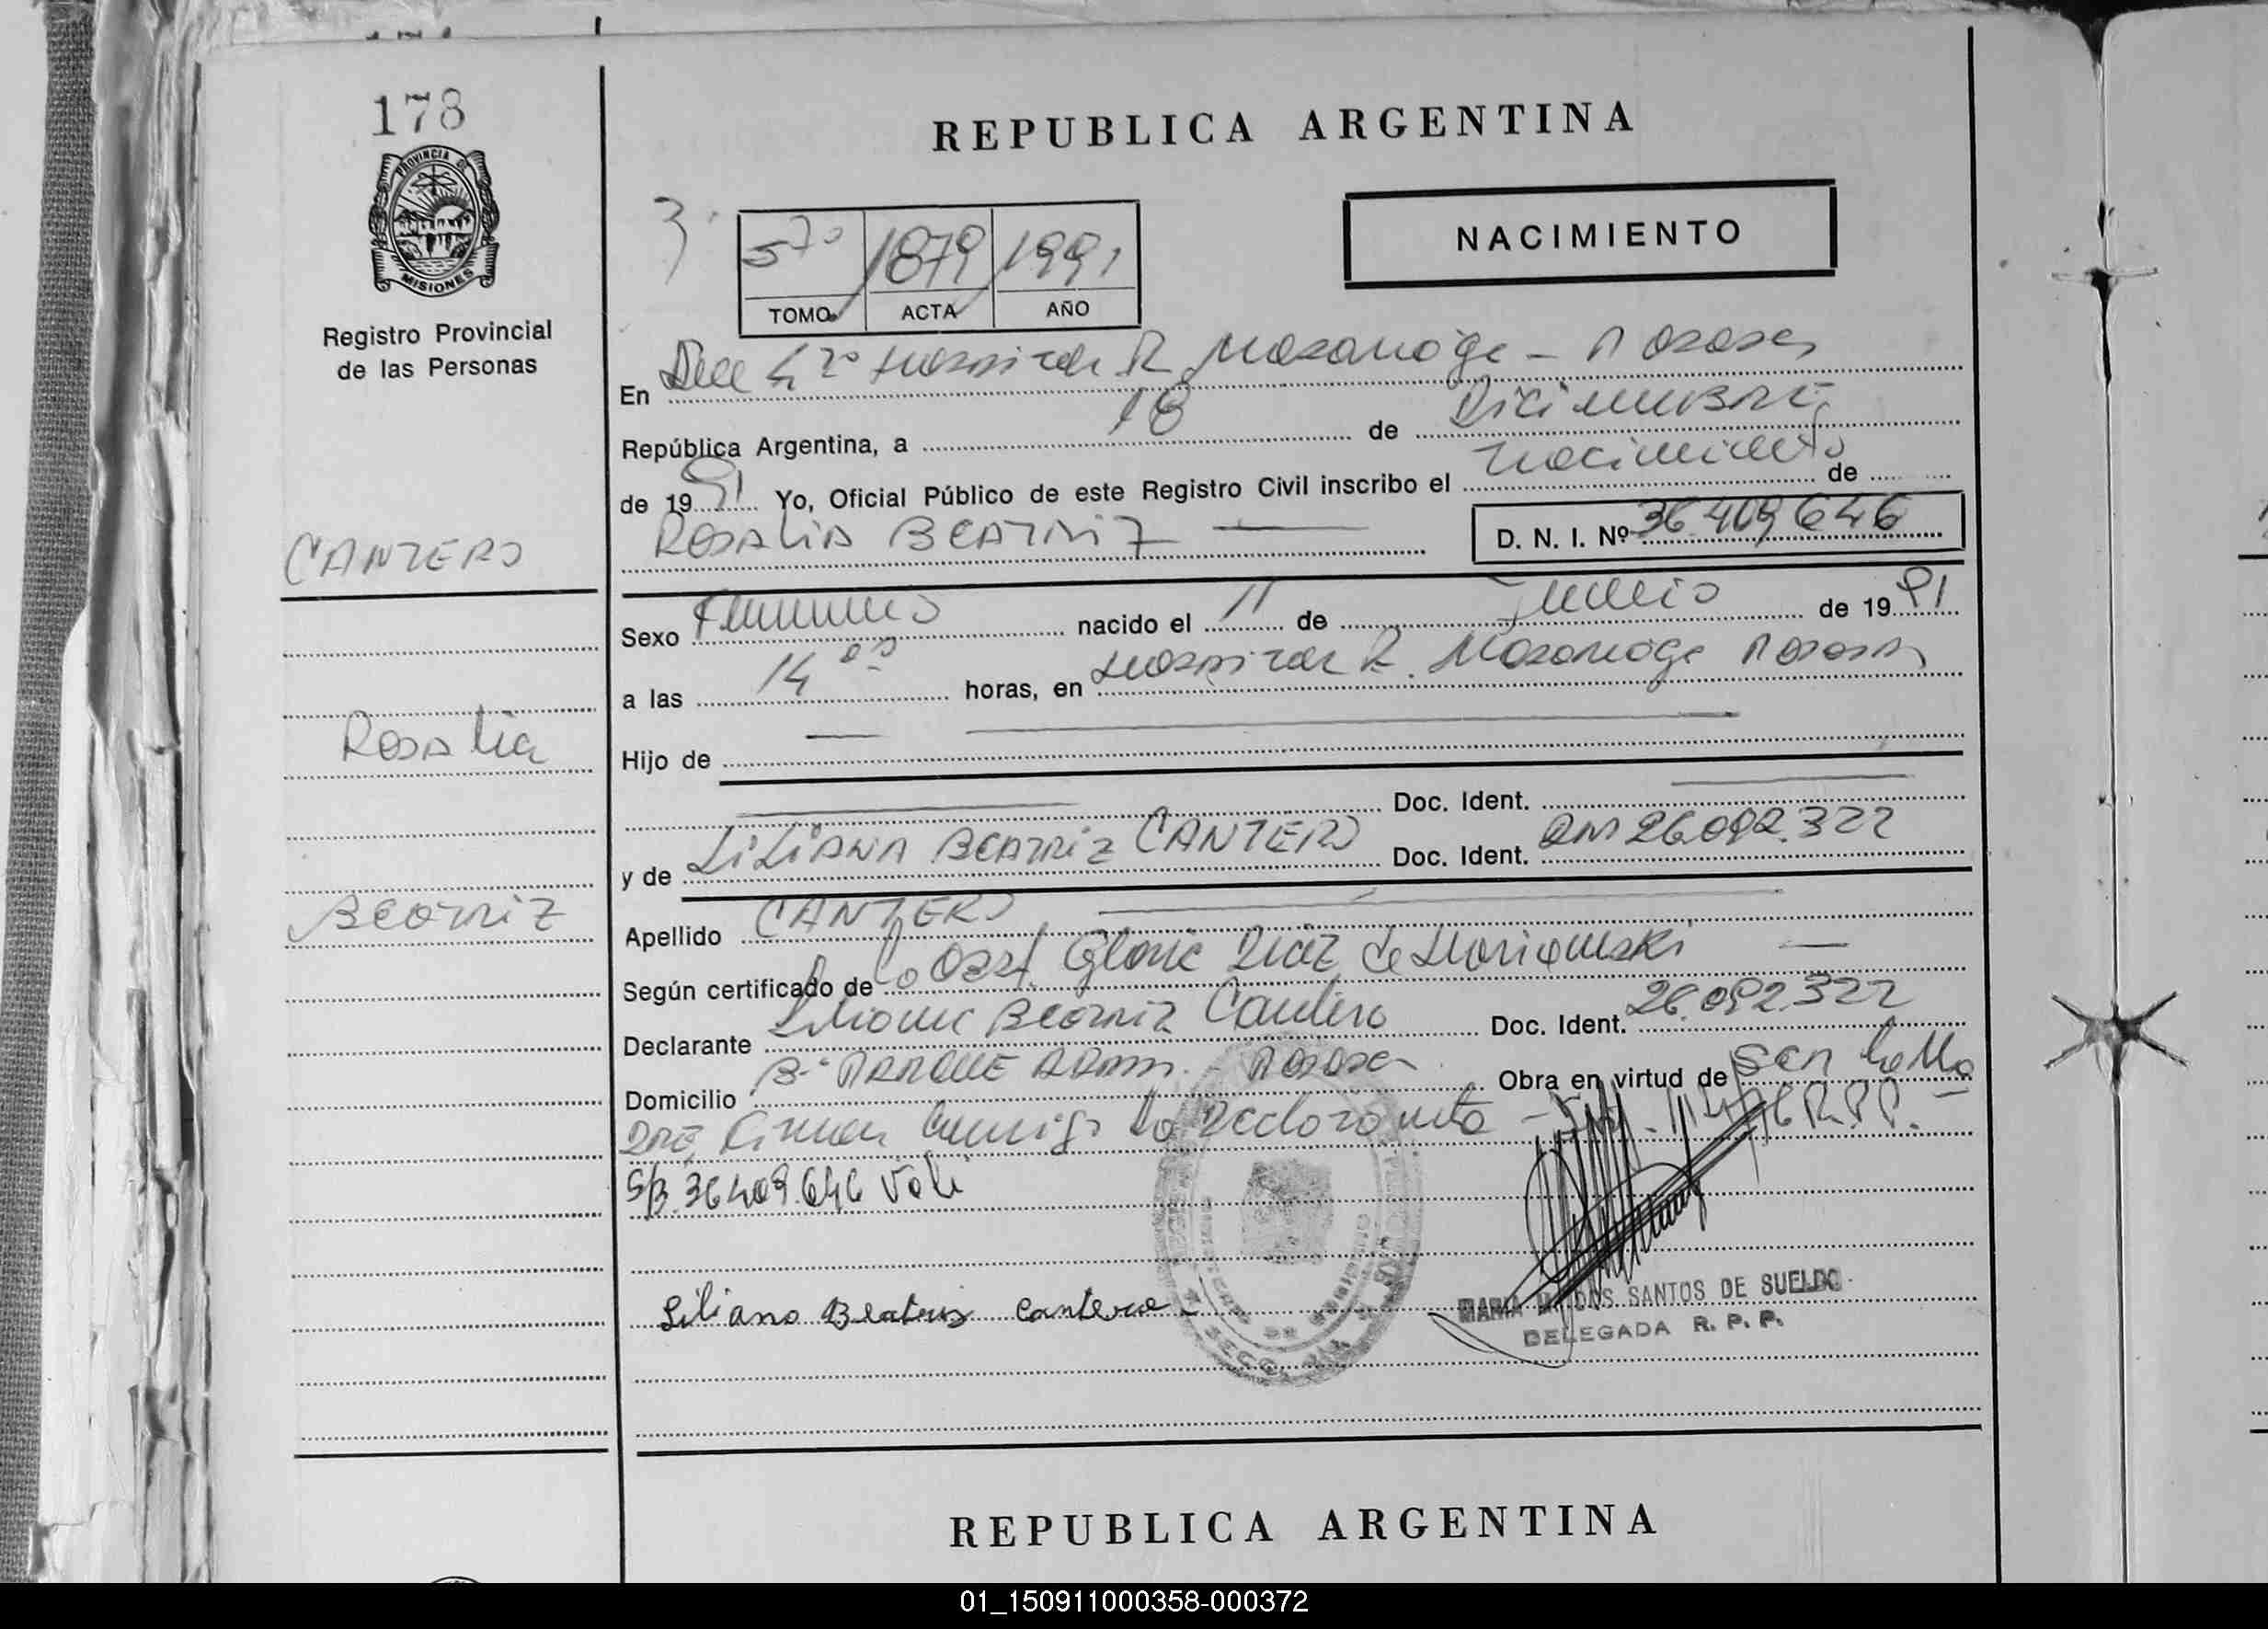 178
REPUBLICA ARGENTINA
PROVINCIA DE
MISIONES
Registro Provincial
de las Personas
NACIMIENTO
3
5 7º 1879 1991
TOMO ACTA AÑO
En Hospital R Madariaga - Posadas
República Argentina, a 18 de Diciembre
de 1991 Yo, Oficial Público de este Registro Civil inscribo el nacimiento de
CANTERO
ROSALIA BEATRIZ
D. N. I. Nº 36.409.646
Sexo Femenino nacido el 11 de de 1991
a las 14 00 horas, en Hospital R. Madariaga Posadas
Rosalia
Hijo de
Doc. Ident.
y de LILIANA BEATRIZ CANTERO Doc. Ident. 26.092.322
Beatriz
Apellido CANTERO
Según certificado de la Obst. Gloria Diaz de
Declarante Liliana Beatriz Cantero Doc. Ident. 26.092.322
Domicilio Bº PARQUE ADAM - Posadas Obra en virtud de ser la Ma
dre, Firman conmigo la declarante - R.P.P. -
S/B. 36409.646 Vale
Liliana Beatris Cantero -
MARIA M. DOS SANTOS DE SUELDO
DELEGADA R. P. P.
REPUBLICA ARGENTINA
01_150911000358-000372